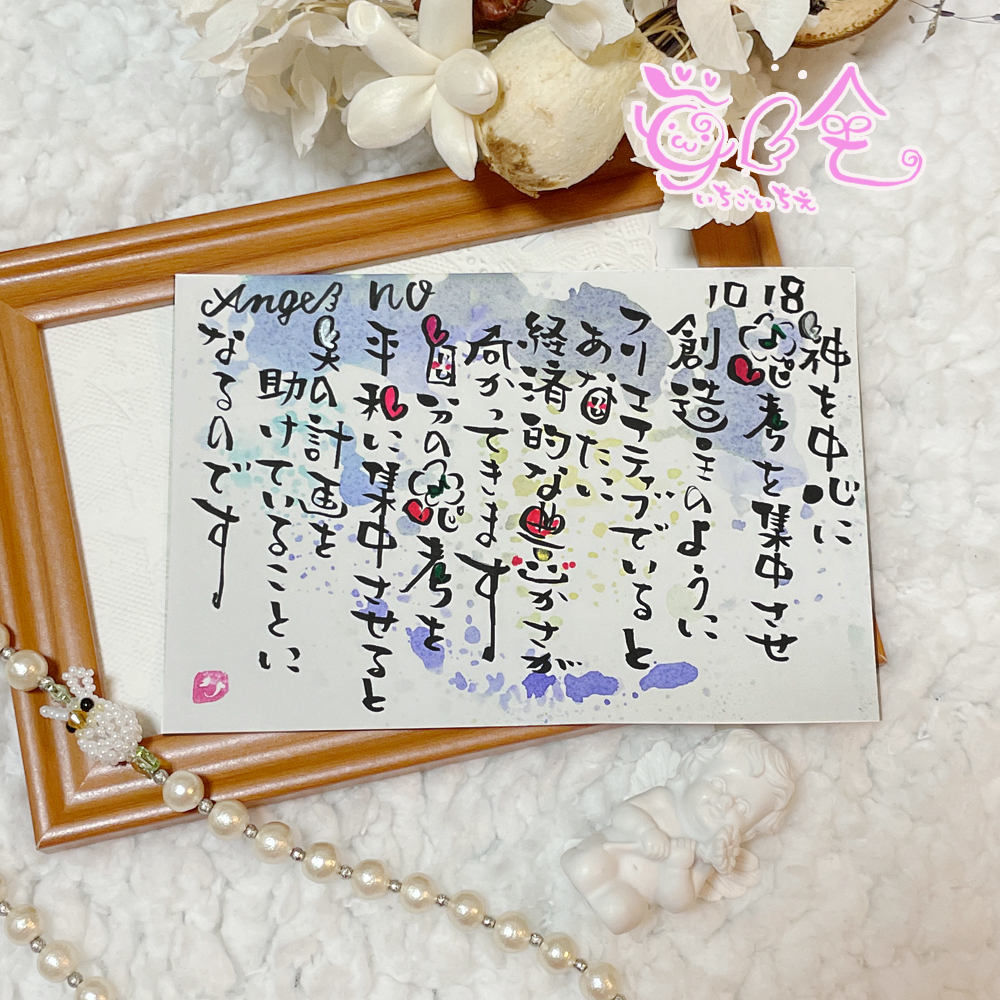 Angel no
1018
神を中心に
思考を集中させ
創造主のように
クリエイティブでいると
あなたに
経済的な豊かさが
向かってきます
自分の思考を
平和に集中させると
天の計画を
助けていることに
なるのです
いちごいちえ